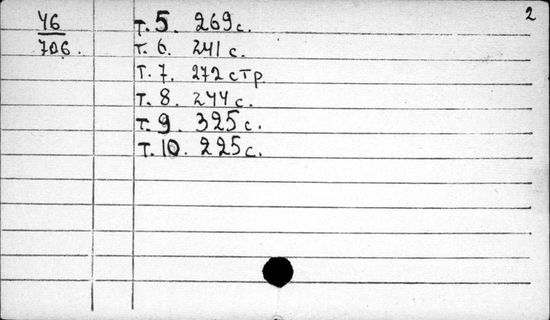 2
46
706.
т. 5. 269 с.
т. 6. 241 с.
т. 7. 272 стр
т. 8. 244 с.
т. 9. 325 с.
т. 10. 225 с.